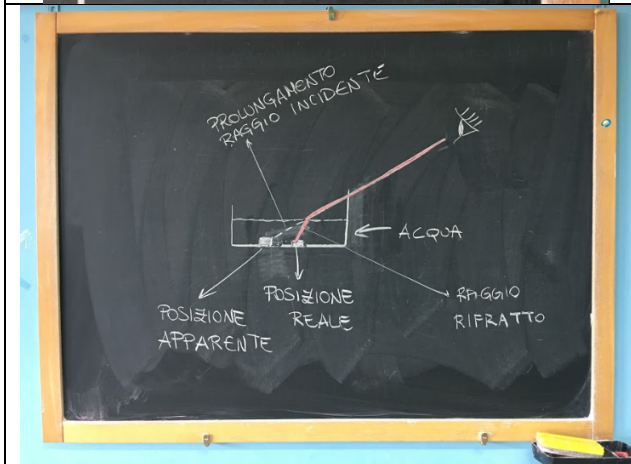 PROLUNGAMENTO
RAGGIO INCIDENTE
ACQUA
POSIZIONE
APPARENTE
POSIZIONE
REALE
RAGGIO
RIFRATTO